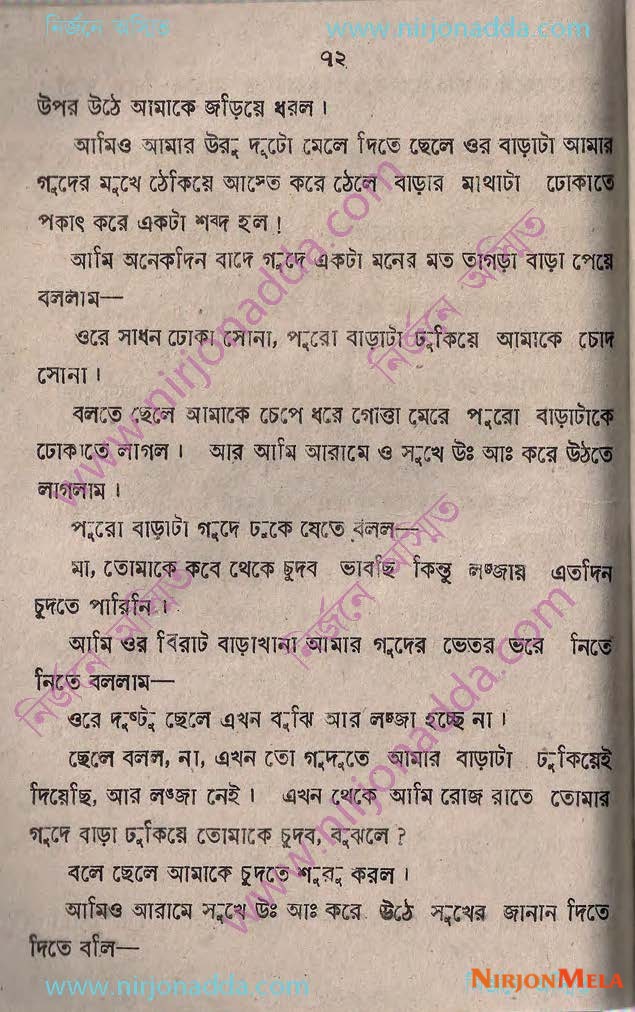 নির্জনে অস্মিত www.nirjonadda.com
৭২
উপর উঠে আমাকে জড়িয়ে ধরল ।
আমিও আমার উরু দুটো মেলে দিতে ছেলে ওর বাড়াটা আমার
গুদের মুখে ঠেকিয়ে আস্তে করে ঠেলে বাড়ার মাথাটা ঢোকাতে
পকাৎ করে একটা শব্দ হল !
আমি অনেকদিন বাদে গুদে একটা মনের মত তাগড়া বাড়া পেয়ে
বললাম—
ওরে সাধন ঢোকা সোনা, পুরো বাড়াটা ঢুকিয়ে আমাকে চোদ
সোনা ।
বলতে ছেলে আমাকে চেপে ধরে গোত্তা মেরে পুরো বাড়াটাকে
ঢোকাতে লাগল । আর আমি আরামে ও সুখে উঃ আঃ করে উঠতে
লাগলাম ।
পুরো বাড়াটা গুদে ঢুকে যেতে বলল—
মা, তোমাকে কবে থেকে চুদব ভাবছি কিন্তু লজ্জায় এতদিন
চুদতে পারিনি ।
আমি ওর বিরাট বাড়াখানা আমার গুদের ভেতর ভরে নিতে
নিতে বললাম—
ওরে দুষ্টু ছেলে এখন বুঝি আর লজ্জা হচ্ছে না ।
ছেলে বলল, না, এখন তো গুদুতে আমার বাড়াটা ঢুকিয়েই
দিয়েছি, আর লজ্জা নেই । এখন থেকে আমি রোজ রাতে তোমার
গুদে বাড়া ঢুকিয়ে তোমাকে চুদব, বুঝলে ?
বলে ছেলে আমাকে চুদতে শুরু করল ।
আমিও আরামে সুখে উঃ আঃ করে উঠে সুখের জানান দিতে
দিতে বলি—
www.nirjonadda.com NIRJONMELA